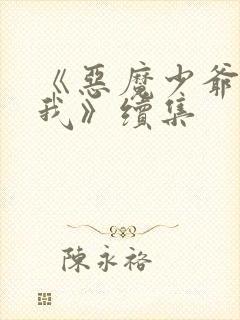 《惡魔少爺
我》續集
陳永裕